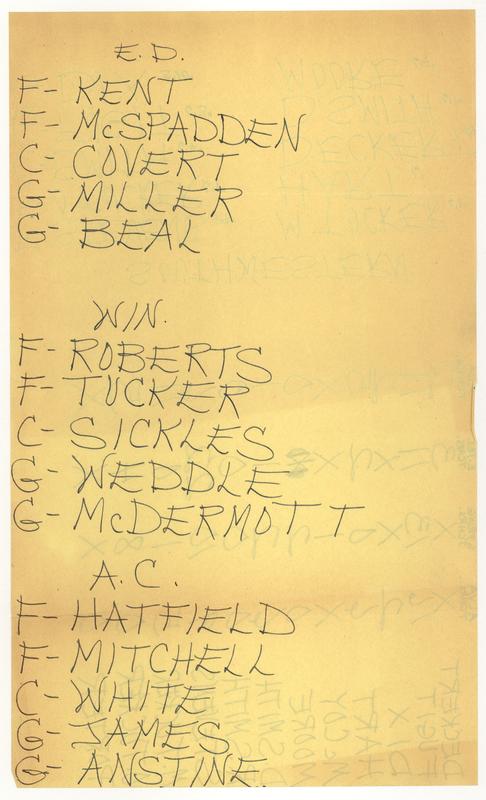 E.D.
F- KENT
F- McSPADDEN
C- COVERT
G- MILLER
G- BEAL
WIN.
F- ROBERTS
F- TUCKER
C- SICKLES
G- WEDDLE
G- McDERMOTT
A.C.
F- HATFIELD
F- MITCHELL
C- WHITE
G- JAMES
G- ANSTINE